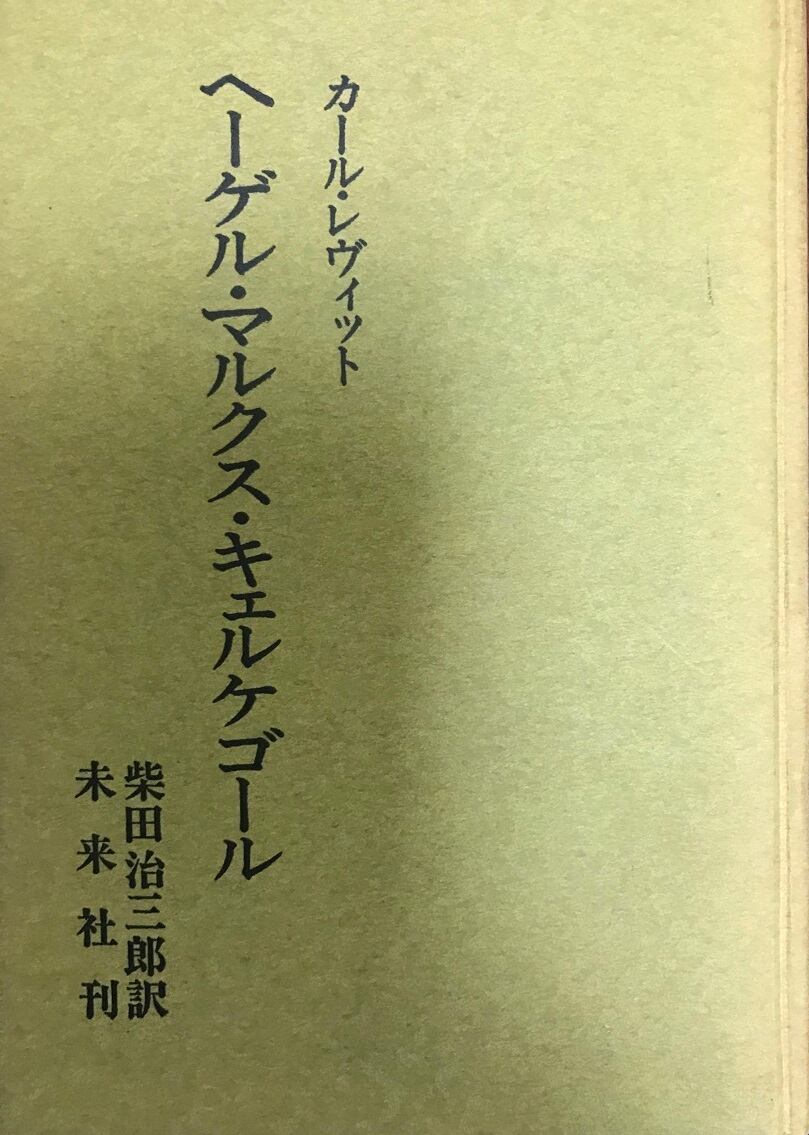 カール・レヴィット
ヘーゲル・マルクス・キェルケゴール
柴田治三郎訳
未来社刊